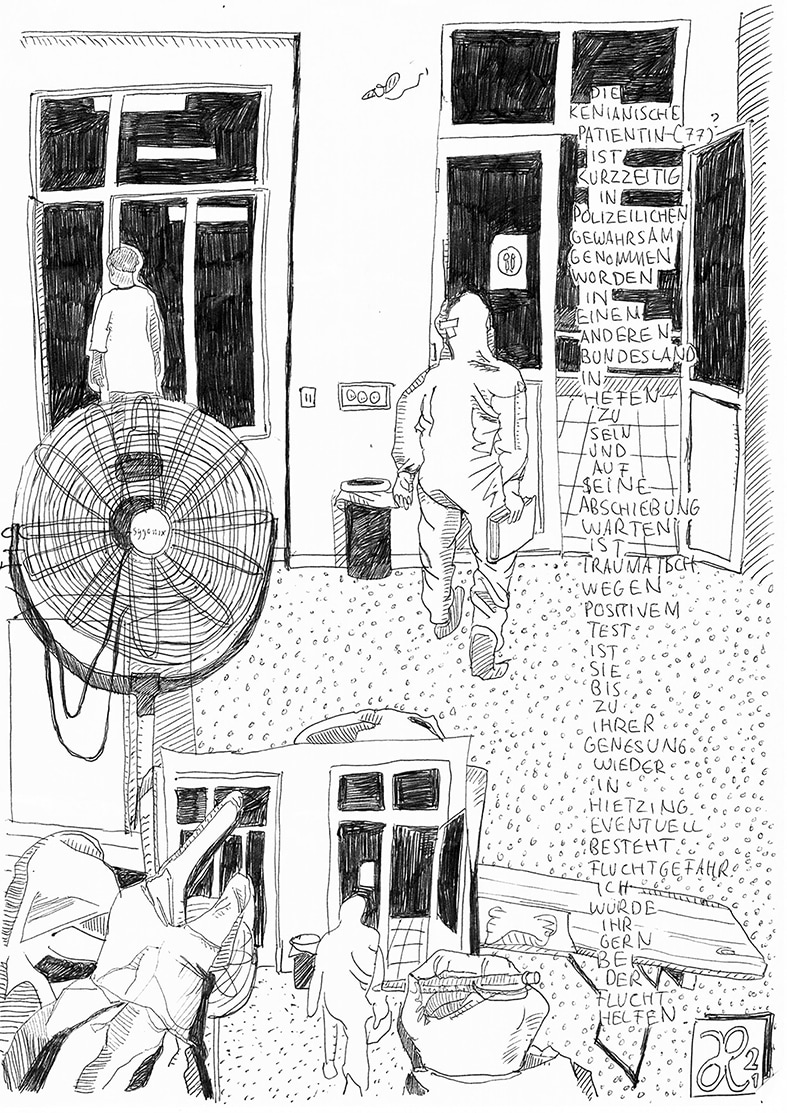 DIE
KENIANISCHE
PATIENTIN (77)?
IST
KURZZEITIG
IN
POLIZEILICHEN
GEWAHRSAM
GENOMMEN
WORDEN
IN
EINEN
ANDEREN
BUNDESLAND
IN
HEFEN
ZU
SEIN
UND
AUF
SEINE
ABSCHIEBUNG
WARTEN
IST
TRAUMATISCH
WEGEN
POSITIVEM
TEST
IST
SIE
BIS
ZU
IHRER
GENESUNG
WIEDER
IN
HIETZING
EVENTUELL
BESTEHT
FLUCHTGEFAHR
ICH
WÜRDE
IHR
GERN
BEI
DER
FLUCHT
HELFEN
sygonix
Æ 21